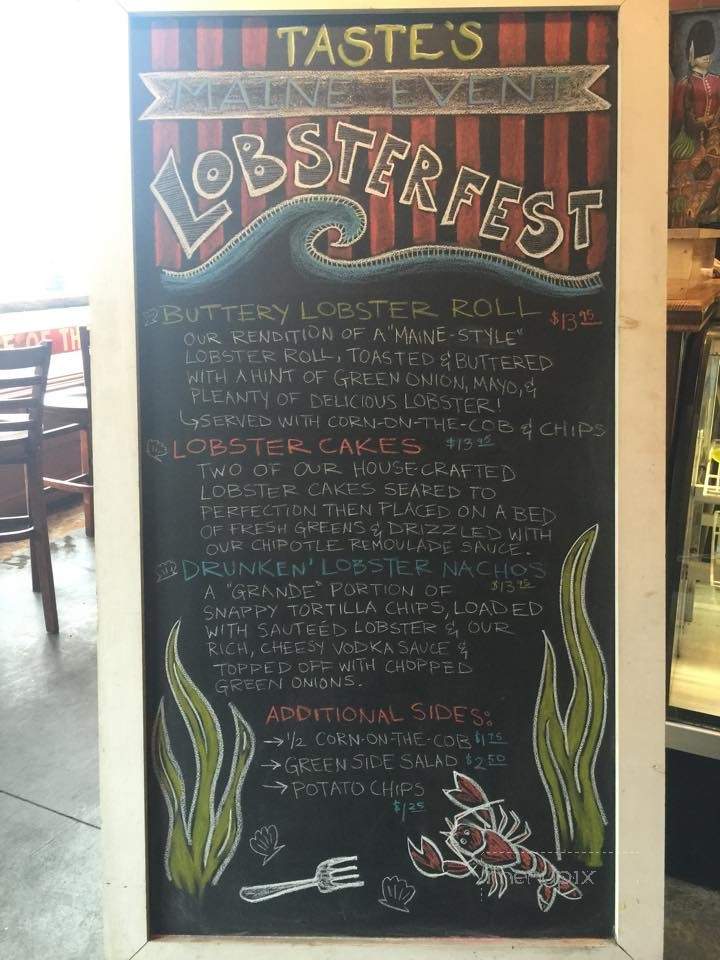 TASTE'S
MAINE EVENT
LOBSTERFEST
BUTTERY LOBSTER ROLL $13.95
OUR RENDITION OF A "MAINE-STYLE"
LOBSTER ROLL, TOASTED & BUTTERED
WITH A HINT OF GREEN ONION, MAYO, &
PLEANTY OF DELICIOUS LOBSTER!
↳SERVED WITH CORN-ON-THE-COB & CHIPS
LOBSTER CAKES $13.95
TWO OF OUR HOUSE-CRAFTED
LOBSTER CAKES SEARED TO
PERFECTION THEN PLACED ON A BED
OF FRESH GREENS & DRIZZLED WITH
OUR CHIPOTLE REMOULADE SAUCE.
DRUNKEN' LOBSTER NACHOS
$13.95
A "GRANDE" PORTION OF
SNAPPY TORTILLA CHIPS, LOADED
WITH SAUTEÉD LOBSTER & OUR
RICH, CHEESY VODKA SAUCE &
TOPPED OFF WITH CHOPPED
GREEN ONIONS.
ADDITIONAL SIDES:
→ 1/2 CORN-ON-THE-COB $1.75
→ GREEN SIDE SALAD $2.50
→ POTATO CHIPS
$1.25
menupix
E OF TH